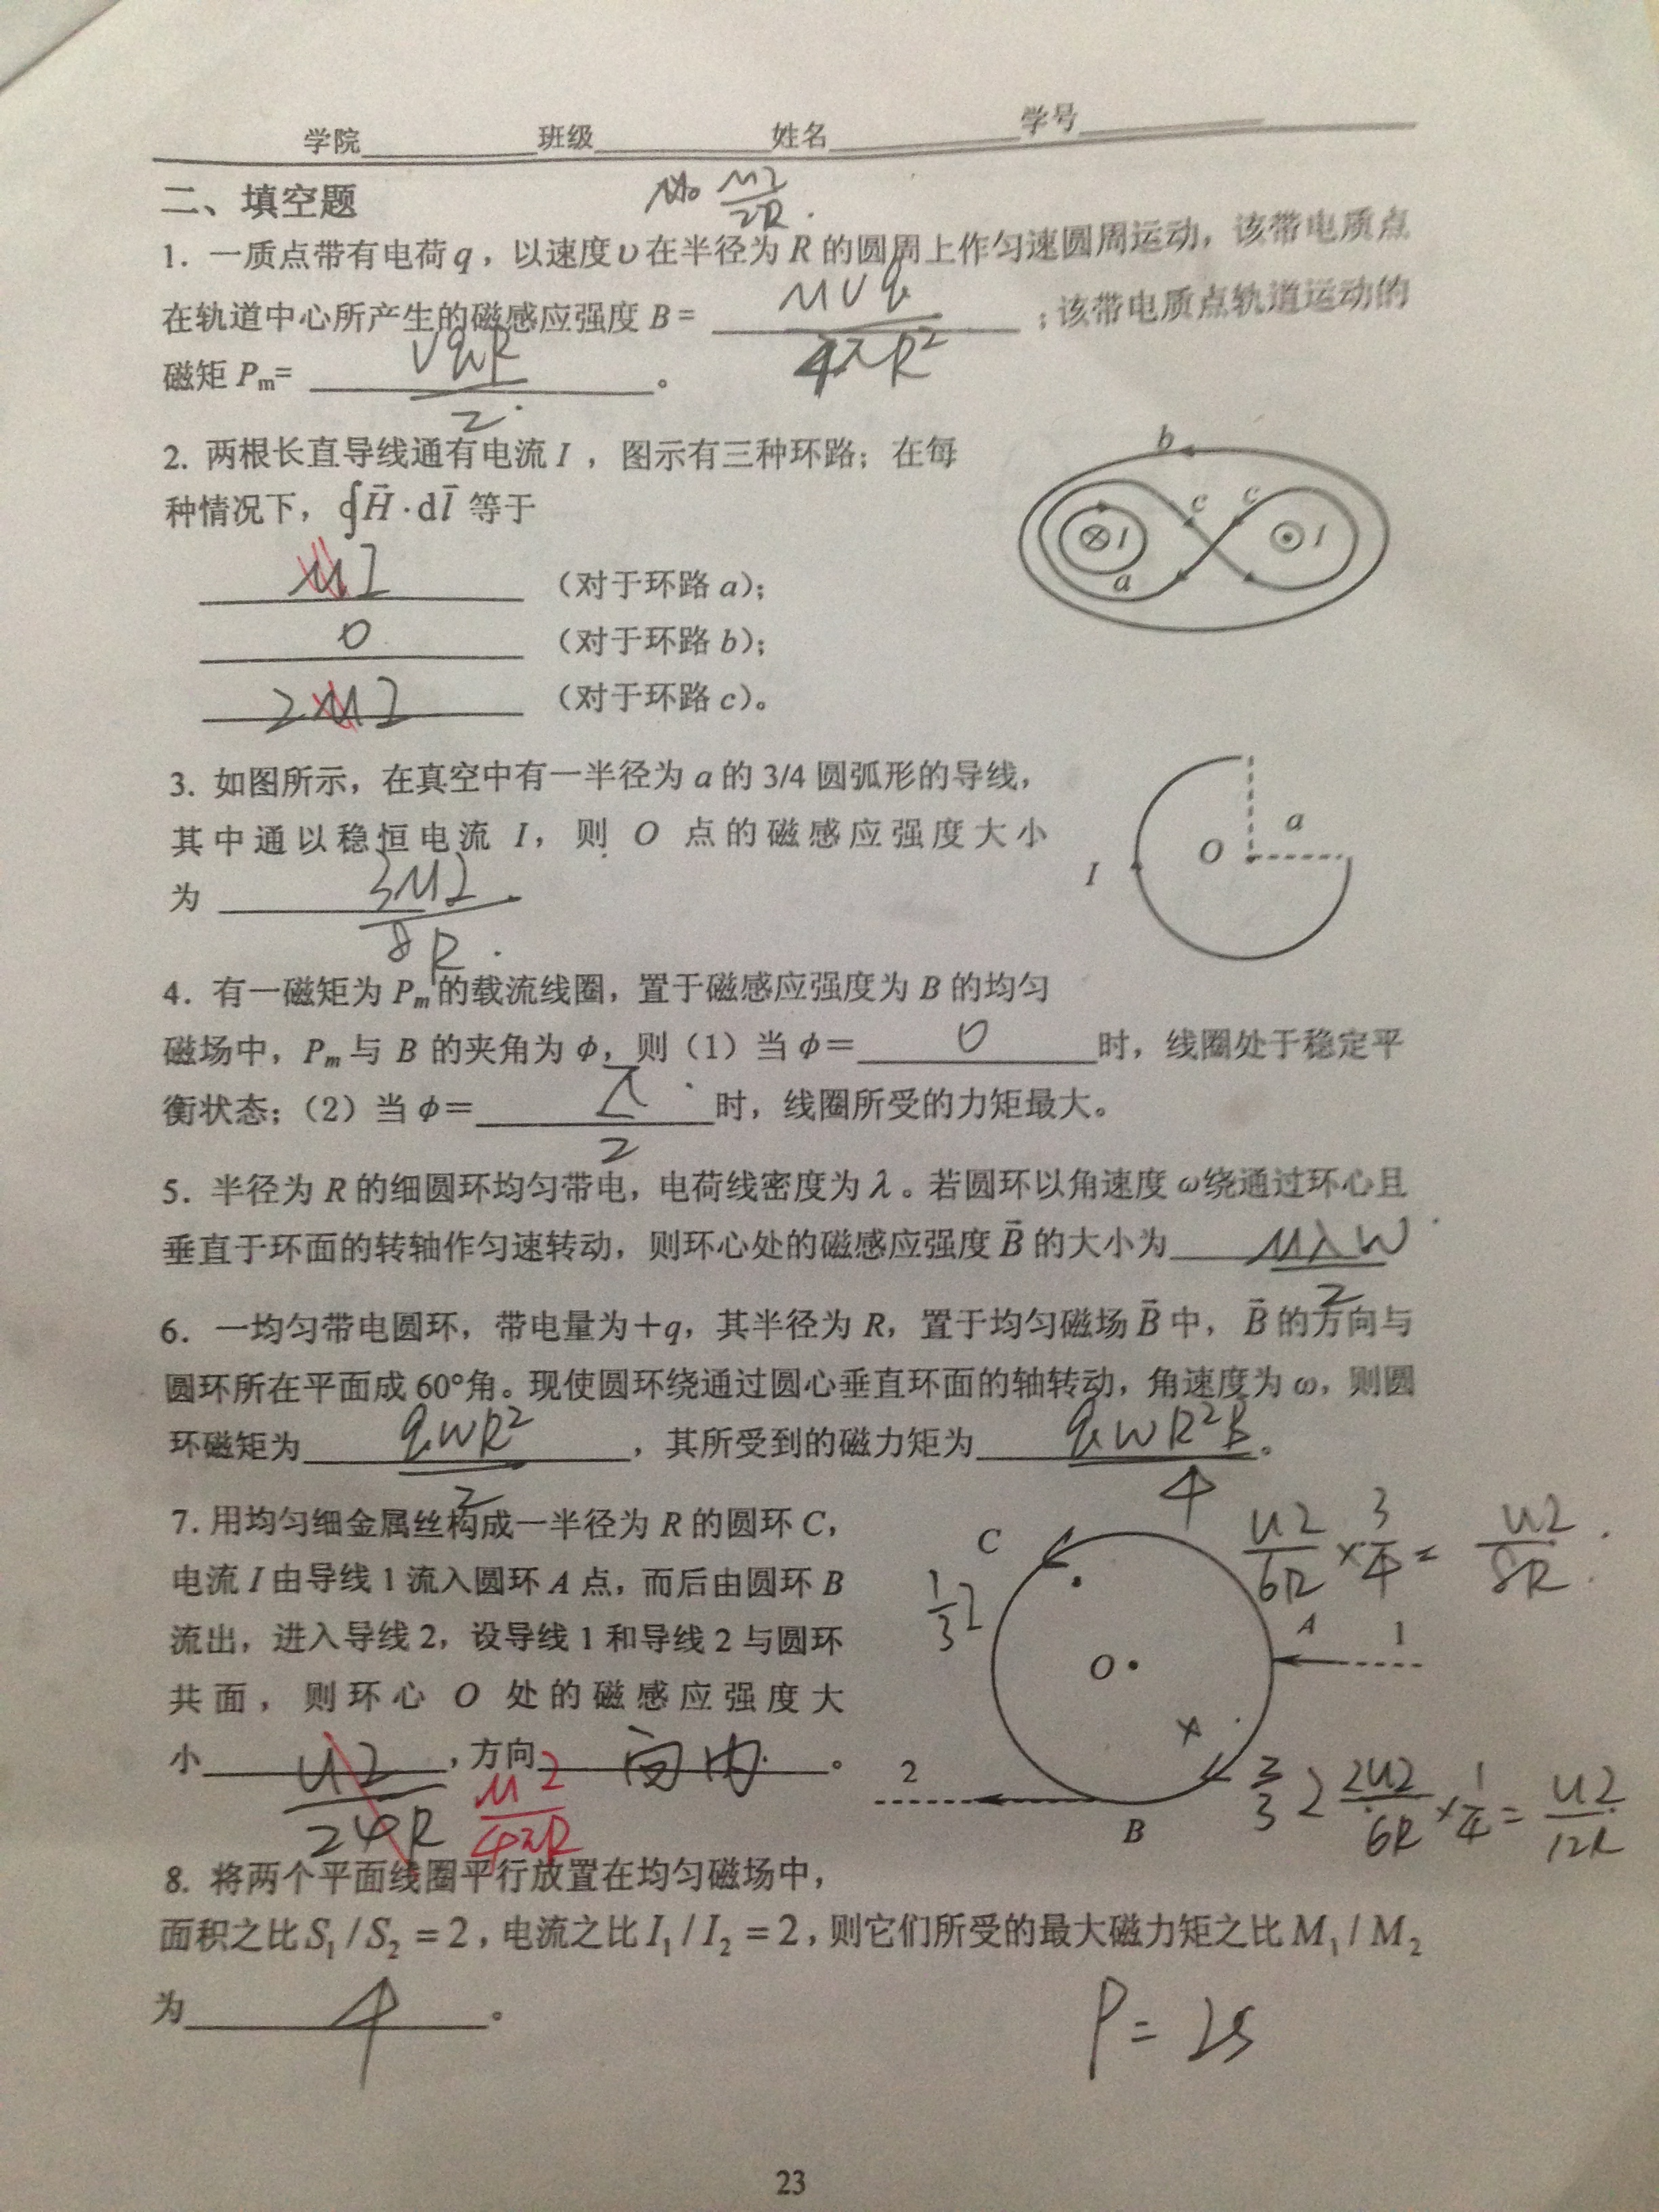 学院 班级 姓名 学号
二、填空题
μI/2R.
1. 一质点带有电荷 q，以速度 υ 在半径为 R 的圆周上作匀速圆周运动，该带电质点
在轨道中心所产生的磁感应强度 B= μvq/4πR² ；该带电质点轨道运动的
磁矩 Pm= vqR/2 。
2. 两根长直导线通有电流 I ，图示有三种环路；在每
种情况下，∮H⃗·dl⃗ 等于
μI （对于环路 a）；
0 （对于环路 b）；
2μI （对于环路 c）。
b
c c
⊗ I ⊙ I
a
3. 如图所示，在真空中有一半径为 a 的 3/4 圆弧形的导线，
其中通以稳恒电流 I，则 O 点的磁感应强度大小
为 3μI/8R .
a
O
I
4. 有一磁矩为 Pm 的载流线圈，置于磁感应强度为 B 的均匀
磁场中，Pm 与 B 的夹角为 φ，则（1）当 φ＝ 0 时，线圈处于稳定平
衡状态；（2）当 φ＝ π/2 时，线圈所受的力矩最大。
5. 半径为 R 的细圆环均匀带电，电荷线密度为 λ。若圆环以角速度 ω 绕通过环心且
垂直于环面的转轴作匀速转动，则环心处的磁感应强度 B⃗ 的大小为 μλω/2
6. 一均匀带电圆环，带电量为＋q，其半径为 R，置于均匀磁场 B⃗ 中，B⃗ 的方向与
圆环所在平面成 60°角。现使圆环绕通过圆心垂直环面的轴转动，角速度为 ω，则圆
环磁矩为 qωR²/2 ，其所受到的磁力矩为 qωR²B/4 。
7. 用均匀细金属丝构成一半径为 R 的圆环 C，
电流 I 由导线 1 流入圆环 A 点，而后由圆环 B
流出，进入导线 2，设导线 1 和导线 2 与圆环
共面，则环心 O 处的磁感应强度大
小 μI/24R μI/4πR ，方向 向内 。
C
μI/6R × 3/4 = μI/8R .
1/3 I
A 1
O
×
2
B
2/3 I 2μI/6R × 1/4 = μI/12R
8. 将两个平面线圈平行放置在均匀磁场中，
面积之比 S₁ / S₂ = 2，电流之比 I₁ / I₂ = 2，则它们所受的最大磁力矩之比 M₁ / M₂
为 4 。
P = IS
23